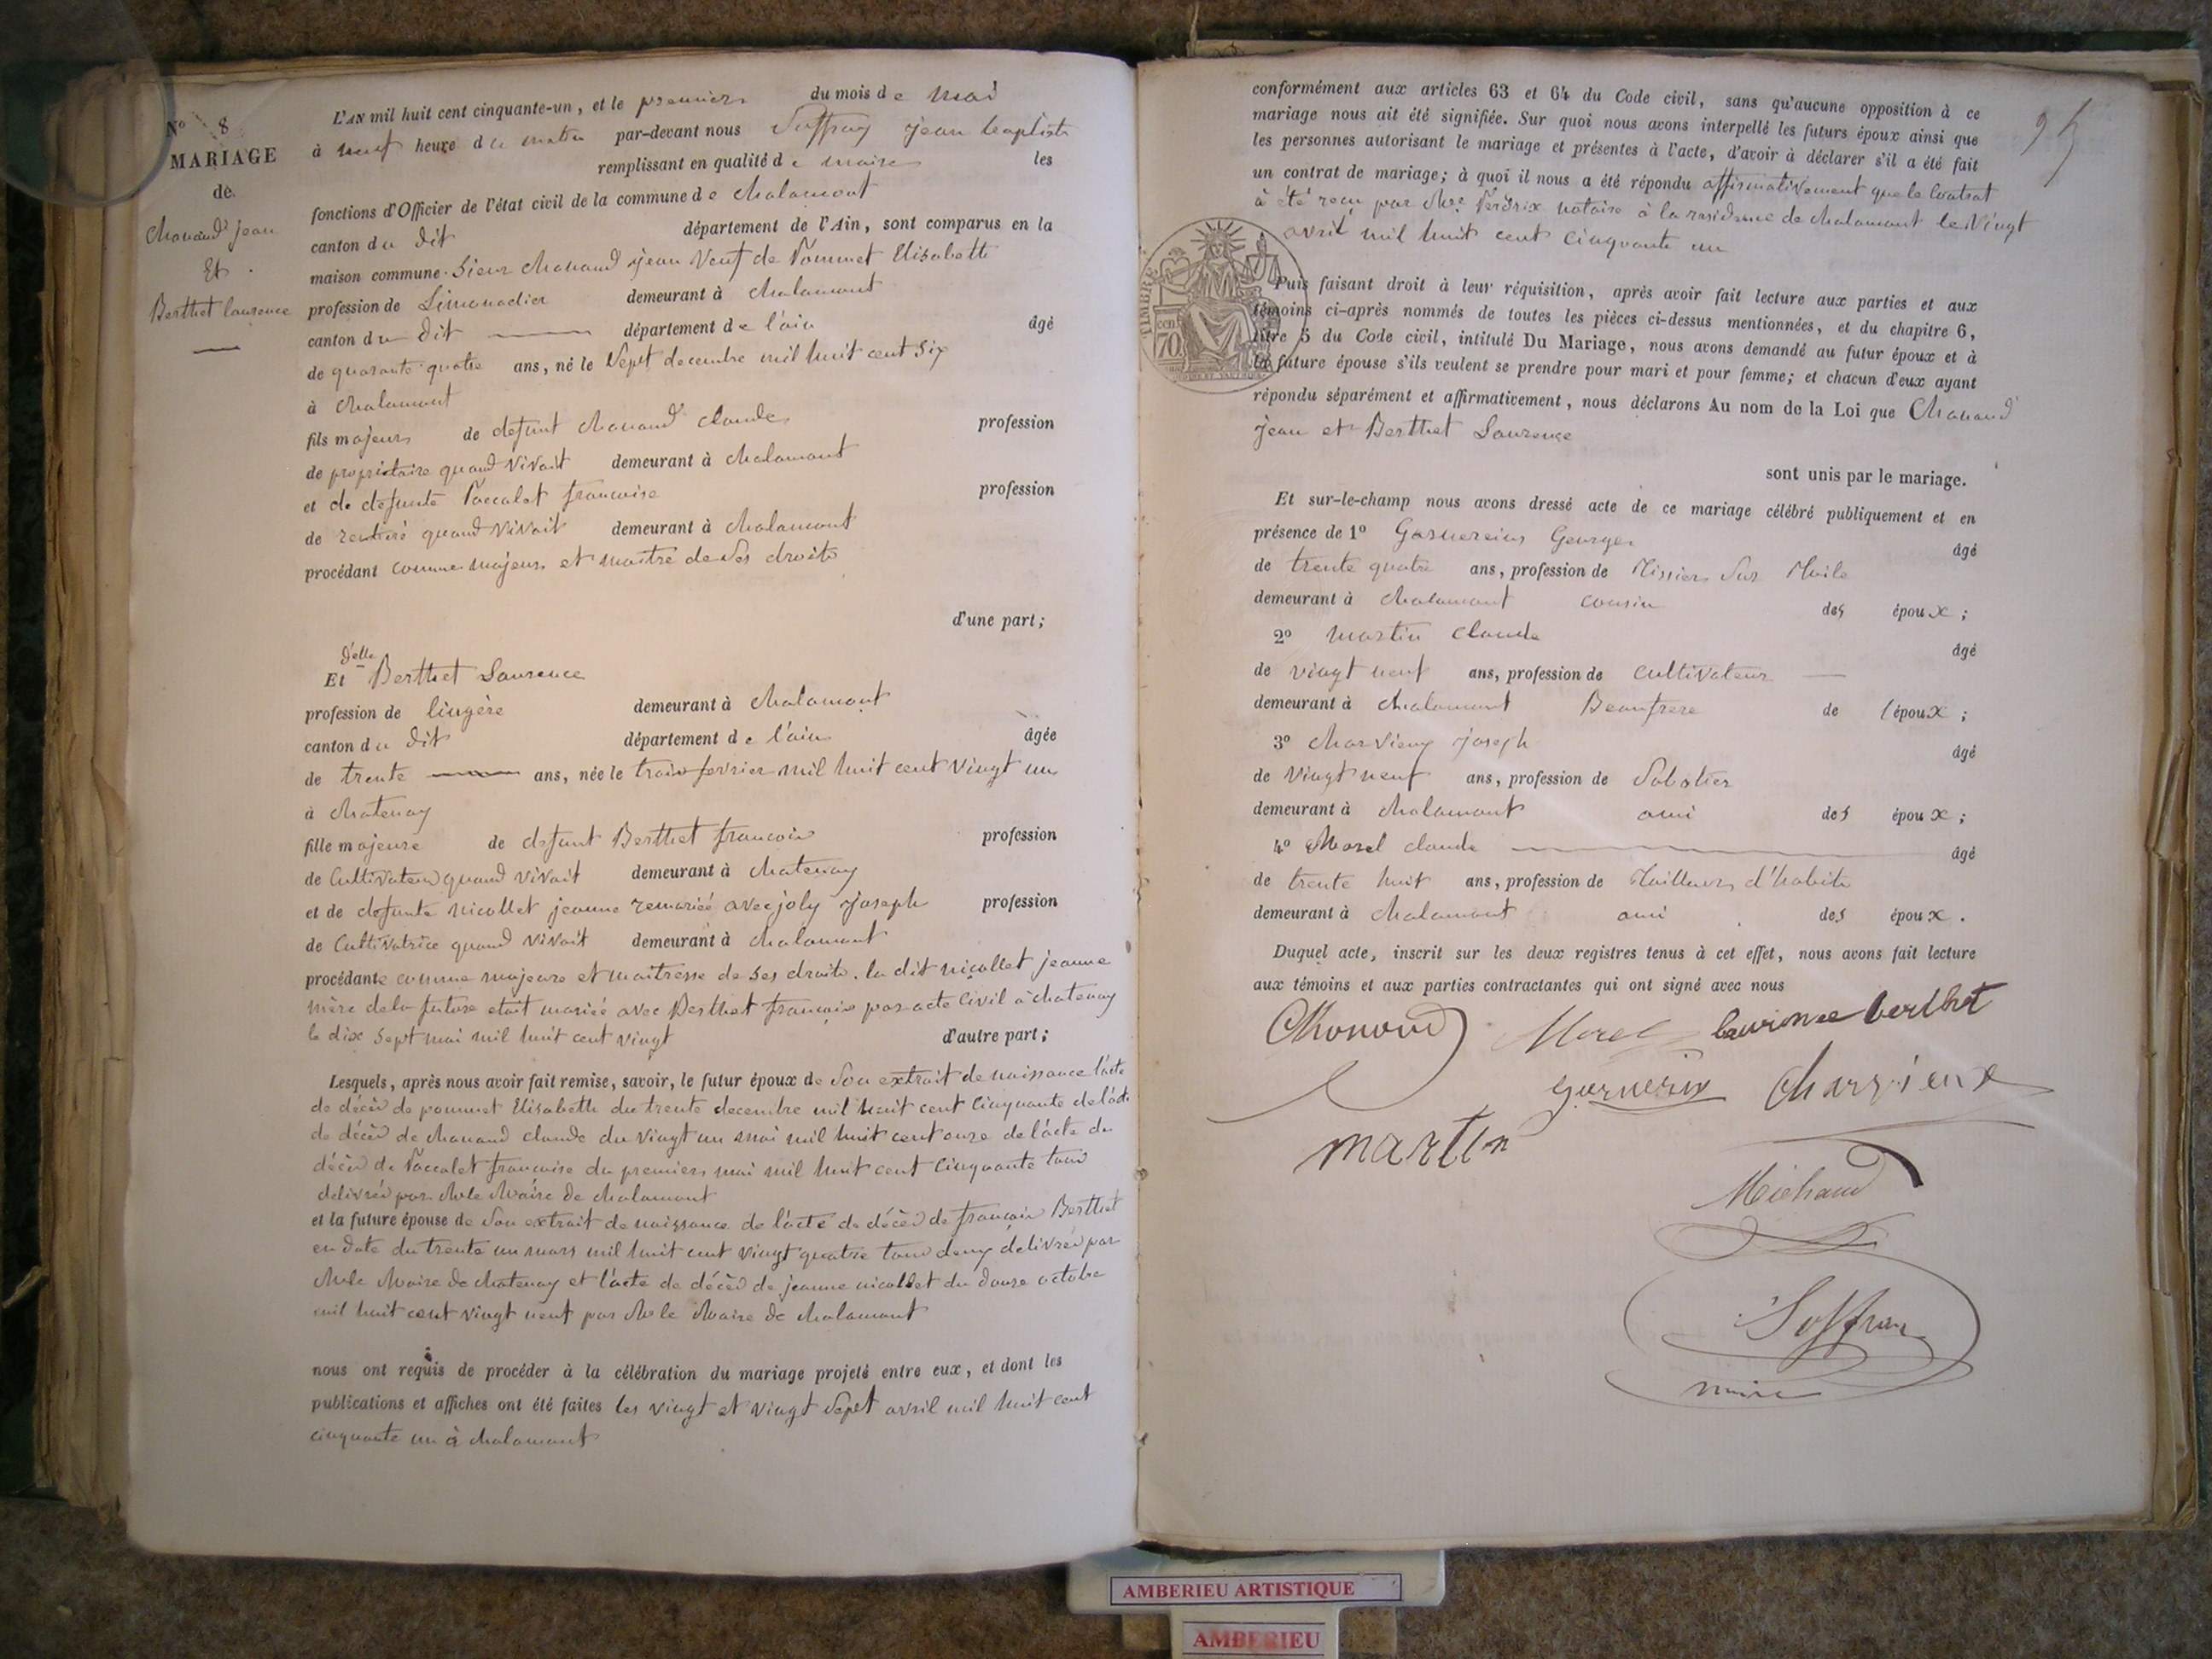 N° 8
MARIAGE
de
Chanaud jean
Et
Berthet laurence
L'AN mil huit cent cinquante-un, et le premier du mois de mai
à neuf heure du matin par-devant nous Suffray jean baptiste
remplissant en qualité de maire les
fonctions d'Officier de l'état civil de la commune de chalamont
canton du dit département de l'Ain, sont comparus en la
maison commune. Sieur chanaud jean Veuf de Pommet Elisabeth
profession de Limonadier demeurant à chalamont
canton du dit département de l'ain âgé
de quarante quatre ans, né le Sept decembre mil huit cent Six
à chalamont
fils majeur de defunt chanaud claude profession
de propriétaire quand Vivait demeurant à chalamont
et de defunte Paccalet francoise profession
de rentiere quand Vivait demeurant à chalamont
procédant comme majeur et maitre de Ses droits
d'une part;
delle
Et Berthet Laurence
profession de lingère demeurant à chalamont
canton du dit département de l'ain âgée
de trente ans, née le trois fevrier mil huit cent Vingt un
à chatenay
fille majeure de defunt Berthet francois profession
de Cultivateur quand Vivait demeurant à chatenay
et de defunte nicollet jeanne remariée avec joly joseph profession
de Cultivatrice quand Vivait demeurant à chalamont
procédante comme majeure et maitresse de Ses droits. la dit nicollet jeanne
mère de la future etait mariée avec Berthet francois par acte Civil à chatenay
le dix Sept mai mil huit cent Vingt d'autre part;
Lesquels, après nous avoir fait remise, savoir, le futur époux de Son extrait de naissance l'acte
de décès de pommet Elisabeth du trente decembre mil huit cent Cinquante de l'acte
de décès de chanaud claude du Vingt un mai mil huit cent onze de l'acte du
décès de Paccalet francoise du premier mai mil huit cent Cinquante tous
delivrés par Mr le Maire de chalamont
et la future épouse de Son extrait de naissance de l'acte de décès de francois Berthet
en date du trente un mars mil huit cent Vingt quatre tous deux delivrés par
Mr le Maire de chatenay et l'acte de décès de jeanne nicollet du douze octobre
mil huit cent Vingt neuf par Mr le Maire de chalamont
nous ont requis de procéder à la célébration du mariage projeté entre eux, et dont les
publications et affiches ont été faites les Vingt et Vingt Sept avril mil huit cent
cinquante un à chalamont
95
conformément aux articles 63 et 64 du Code civil, sans qu'aucune opposition à ce
mariage nous ait été signifiée. Sur quoi nous avons interpellé les futurs époux ainsi que
les personnes autorisant le mariage et présentes à l'acte, d'avoir à déclarer s'il a été fait
un contrat de mariage; à quoi il nous a été répondu affirmativement que le Contrat
à été recu par Me Verdrix notaire à la residence de chalamont le Vingt
avril mil huit cent Cinquante un
TIMBRE
70
cen
Puis faisant droit à leur réquisition, après avoir fait lecture aux parties et aux
témoins ci-après nommés de toutes les pièces ci-dessus mentionnées, et du chapitre 6,
titre 5 du Code civil, intitulé Du Mariage, nous avons demandé au futur époux et à
la future épouse s'ils veulent se prendre pour mari et pour femme; et chacun d'eux ayant
répondu séparément et affirmativement, nous déclarons Au nom de la Loi que Chanaud
jean et Berthet Laurence
sont unis par le mariage.
Et sur-le-champ nous avons dressé acte de ce mariage célébré publiquement et en
présence de 1° Georges âgé
de trente quatre ans, profession de
demeurant à chalamont cousin des époux;
2° Martin claude âgé
de vingt neuf ans, profession de cultivateur
demeurant à chalamont Beaufrere de l'époux;
3° Charvieux joseph âgé
de Vingt neuf ans, profession de Sabotier
demeurant à chalamont ami des époux;
4° Morel claude âgé
de trente huit ans, profession de Tailleur d'habits
demeurant à chalamont ami des époux.
Duquel acte, inscrit sur les deux registres tenus à cet effet, nous avons fait lecture
aux témoins et aux parties contractantes qui ont signé avec nous
Chanaud Morel laurence berthet
Charvieux
martin
Michaud
Suffray
maire
AMBERIEU ARTISTIQUE
AMBERIEU